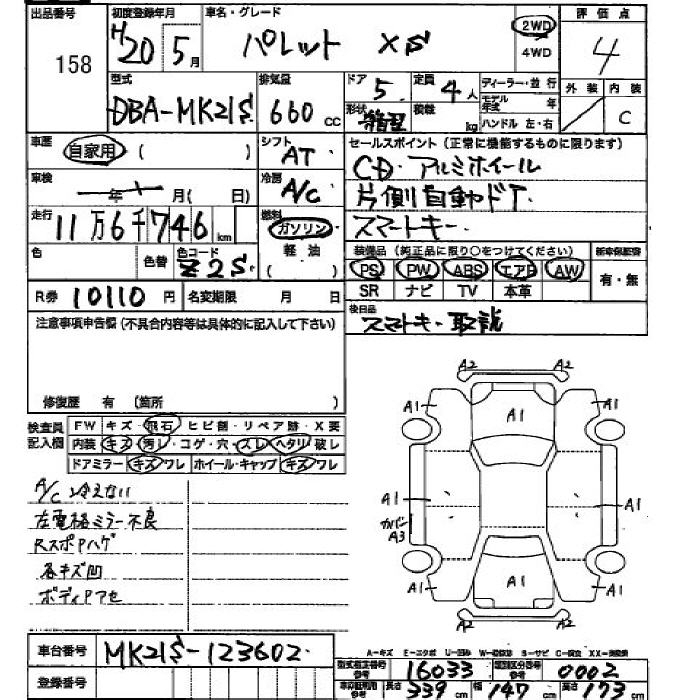 出品番号 158
初度登録年月 H20年5月
車名・グレード パレット XS
2WD
4WD
評価点 4
外装 / 内装 C
型式 DBA-MK21S
排気量 660 cc
ドア 5
定員 4人
形状 箱型
積載 kg
ディーラー・並行
モデル年式 年
ハンドル 左・右
車歴 自家用 ( )
シフト AT
セールスポイント (正常に機能するものに限ります)
CD・アルミホイール
片側自動ドア
スマートキー
車検 年 月( 日)
冷房 A/C
走行 11万6千746km
燃料 ガソリン
軽油
( )
色 色替 色コード Z2S
装備品 (純正品に限り○をつけてください)
新車保証書
PS PW ABS エアB AW
SR ナビ TV 本革
有・無
R券 10110円 名変期限 月 日
後日品
スマートキー・取説
注意事項申告欄 (不具合内容等は具体的に記入して下さい)
修復歴 有 (箇所 )
検査員記入欄
FW キズ・飛石・ヒビ割・リペア跡・X要
内装 キズ・汚レ・コゲ・穴・スレ・ヘタリ・破レ
ドアミラー キズ・ワレ ホイール・キャップ キズ・ワレ
A/C 冷えない
左電格ミラー不良
RスポPハゲ
各キズ凹
ボディPアセ
A2 A2
A1 A1 A1
A1 A1
カバン
A3
A1 A1 A1
A2 A2
A-キズ E-エクボ U-凹み W-補修跡 S-サビ C-腐食 XX-交換済
車台番号 MK21S-123602
登録番号
型式指定番号 参考 16033 類別区分番号 参考 0002
長さ 339 cm 幅 147 cm 高さ 173 cm